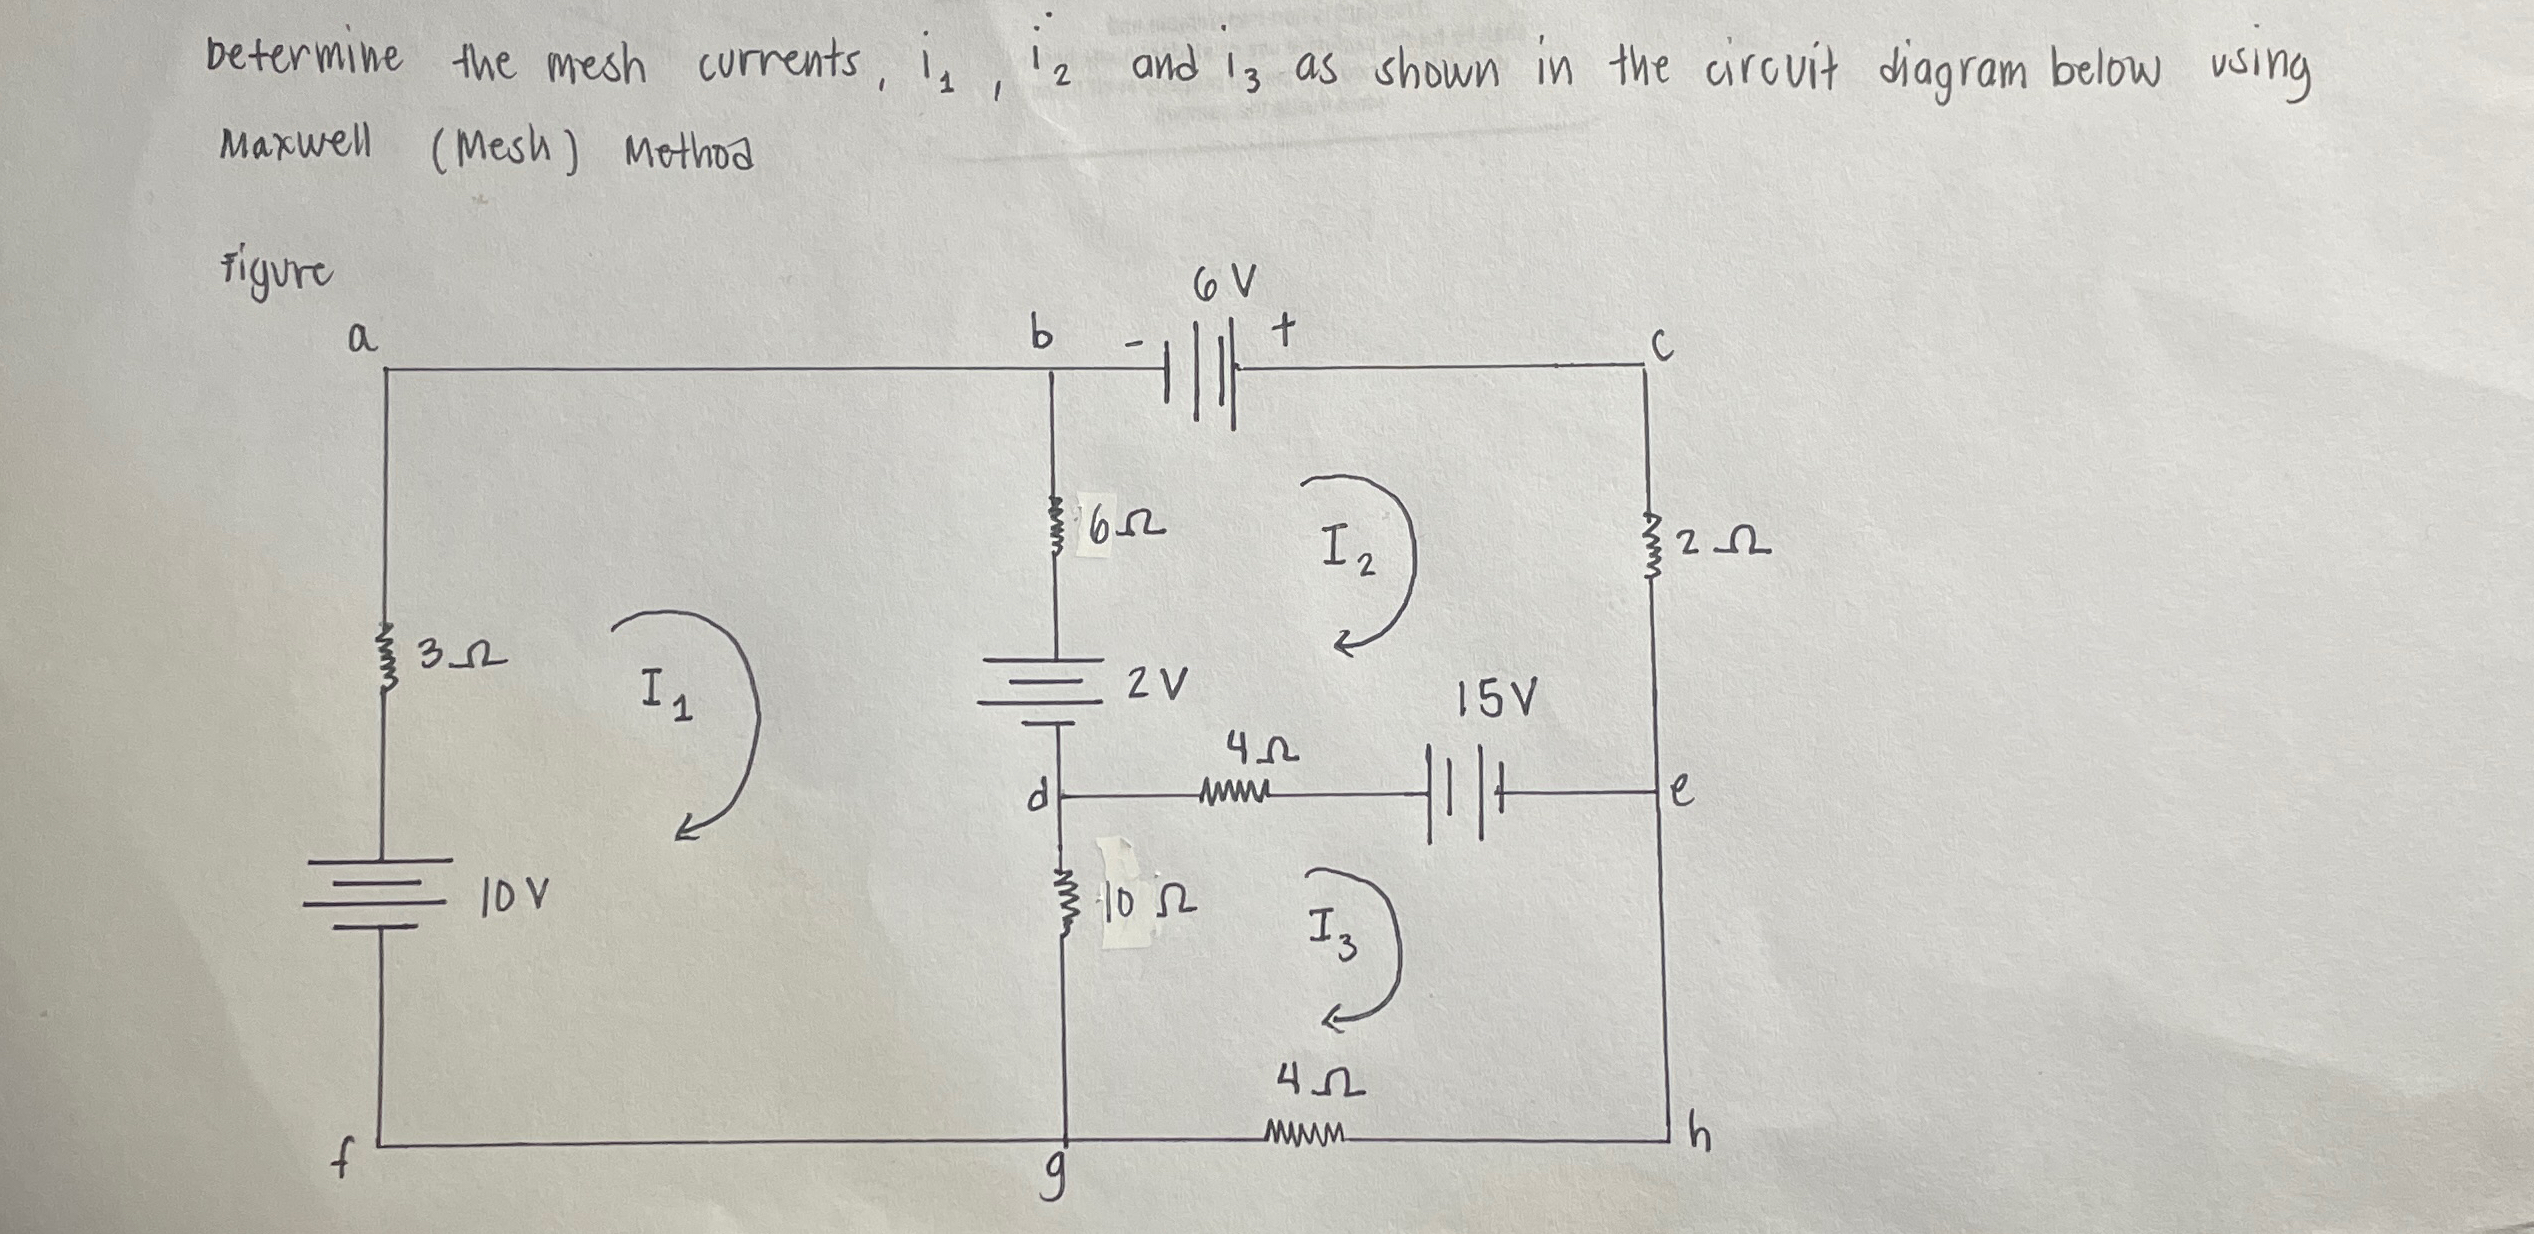 Determine the mesh currents, i1, i2 and i3 as shown in the circuit diagram below using
Maxwell (Mesh) Method
Figure
6 V
a
b
- +
c
6Ω
I2
2 Ω
3Ω
I1
2 V
15V
4Ω
d
e
10 V
10 Ω
I3
4Ω
f
g
h